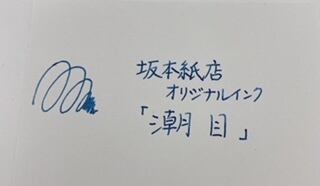 坂本紙店
オリジナルインク
「潮目」